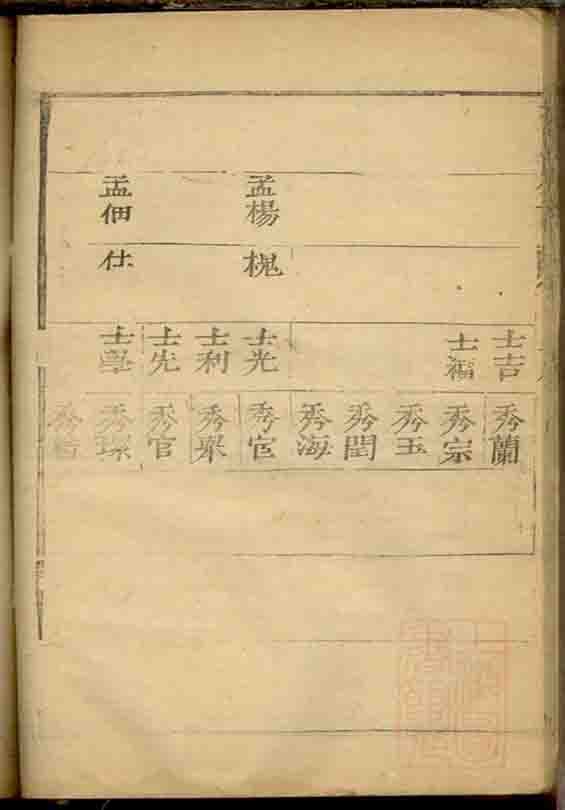 孟楊
孟佃
槐
仕
士吉
士福
士光
士利
士先
士學
秀蘭
秀宗
秀玉
秀閏
秀海
秀宦
秀翠
秀官
秀璨